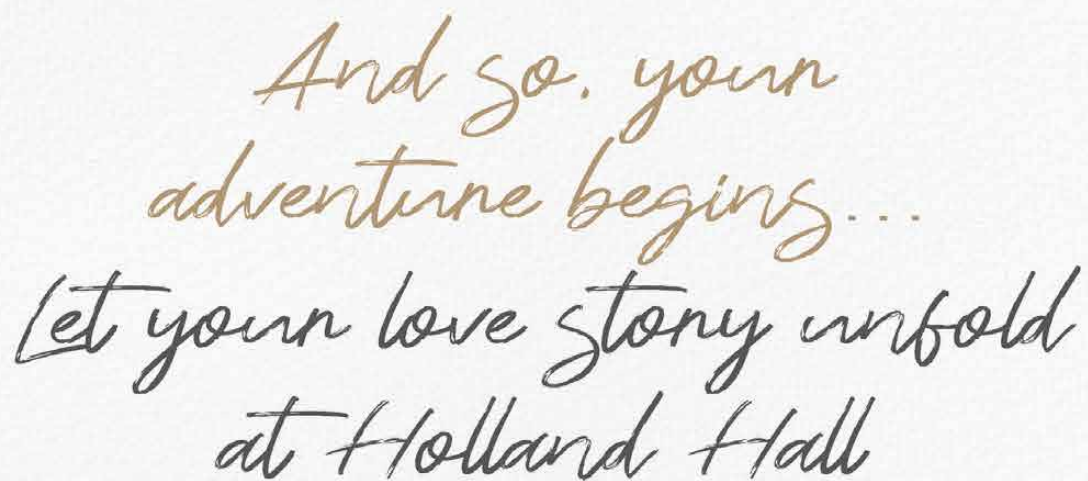 And so, your
adventure begins...
Let your love story unfold
at Holland Hall